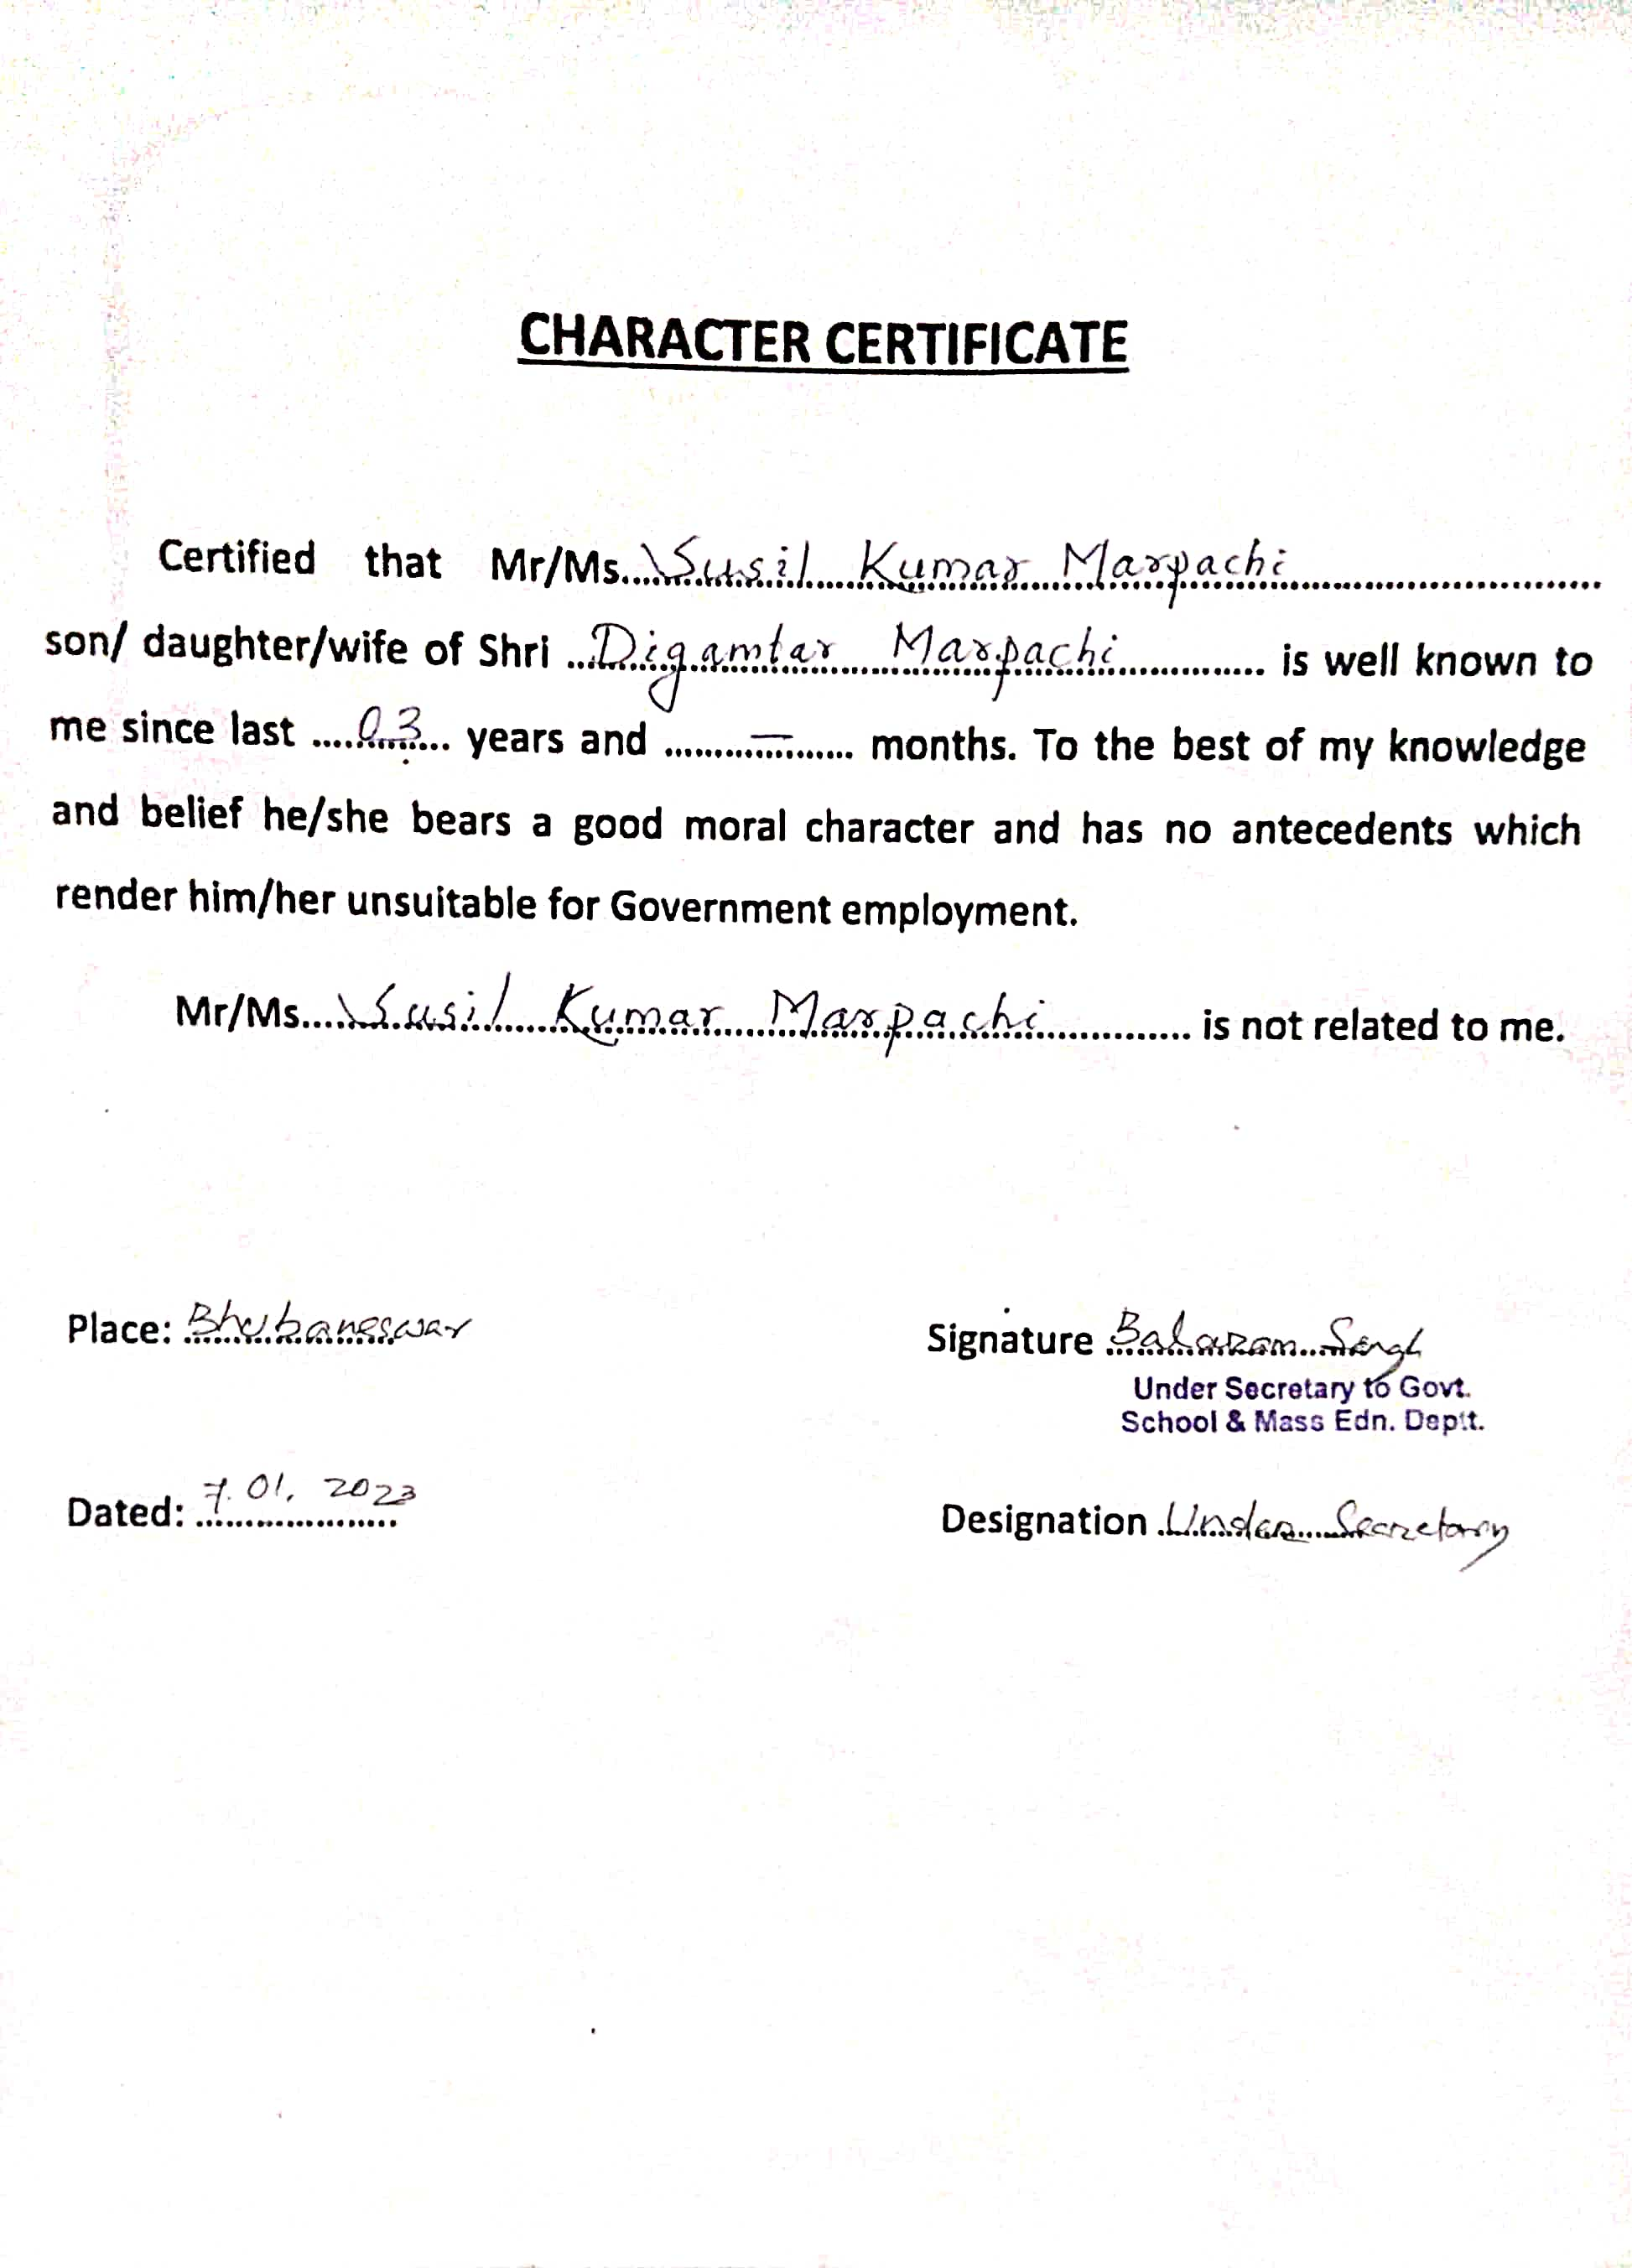 CHARACTER CERTIFICATE
Certified that Mr/Ms.....Susil Kumar Marpachi..........
son/ daughter/wife of Shri ...Digambar Marpachi............. is well known to
me since last .....03... years and .........—....... months. To the best of my knowledge
and belief he/she bears a good moral character and has no antecedents which
render him/her unsuitable for Government employment.
Mr/Ms.....Susil Kumar Marpachi............. is not related to me.
Place: Bhubaneswar
Signature Balaram Singh
Under Secretary to Govt.
School & Mass Edn. Deptt.
Dated: 7.01.2023
Designation Under Secretary